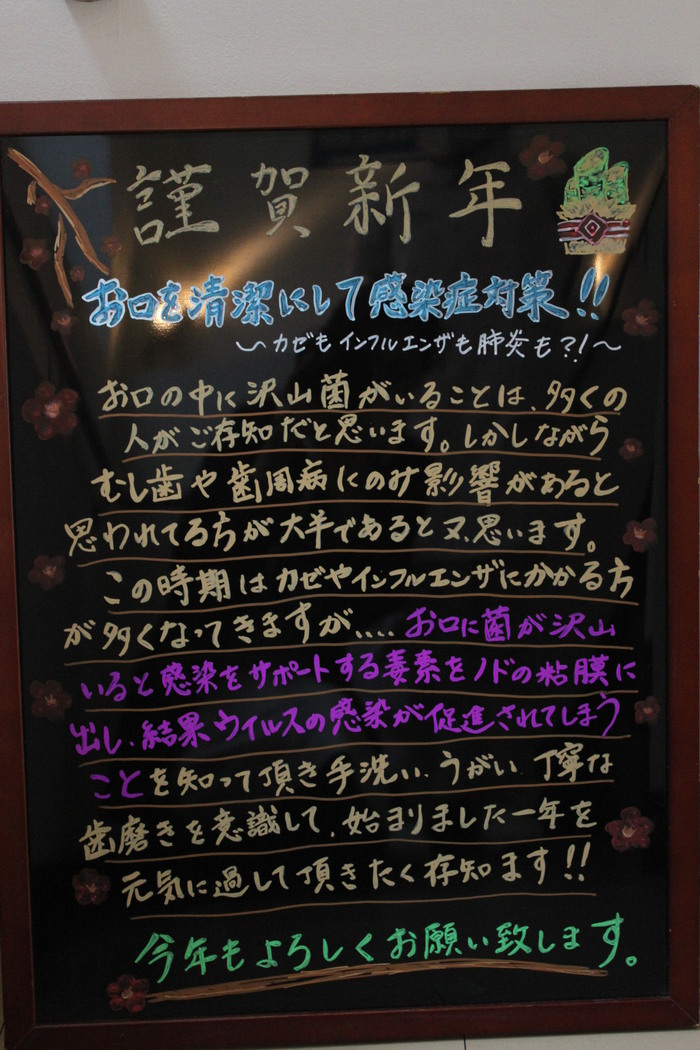 謹賀新年
お口を清潔にして感染症対策!!
〜カゼもインフルエンザも肺炎も?!〜
お口の中に沢山菌がいることは、多くの
人がご存知だと思います。しかしながら
むし歯や歯周病にのみ影響があると
思われてる方が大半であると又、思います。
この時期はカゼやインフルエンザにかかる方
が多くなってきますが....お口に菌が沢山
いると感染をサポートする毒素をノドの粘膜に
出し、結果ウイルスの感染が促進されてしまう
ことを知って頂き手洗い、うがい、丁寧な
歯磨きを意識して、始まりました一年を
元気に過して頂きたく存知ます!!
今年もよろしくお願い致します。